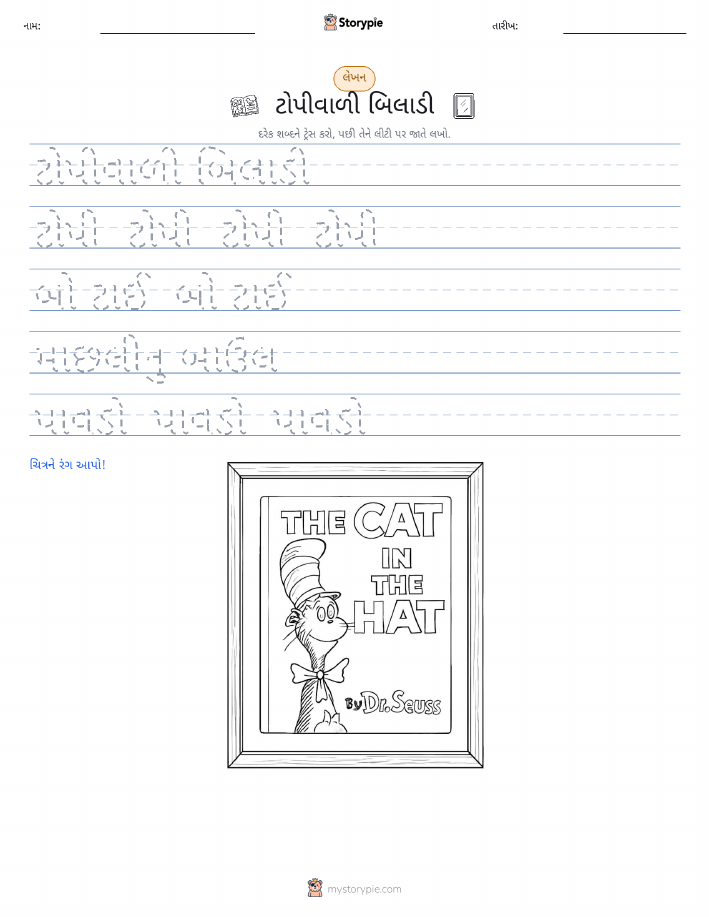 નામ:
Storypie
તારીખ:
લેખન
ટોપીવાળી બિલાડી
દરેક શબ્દને ટ્રેસ કરો, પછી તેને લીટી પર જાતે લખો.
ટોપીવાળી બિલાડી
ટોપી ટોપી ટોપી ટોપી
બો ટાઈ બો ટાઈ
માછલીનુ બાઉલ
પાવડો પાવડો પાવડો
ચિત્રને રંગ આપો!
THE CAT
IN
THE
HAT
By Dr. Seuss
mystorypie.com